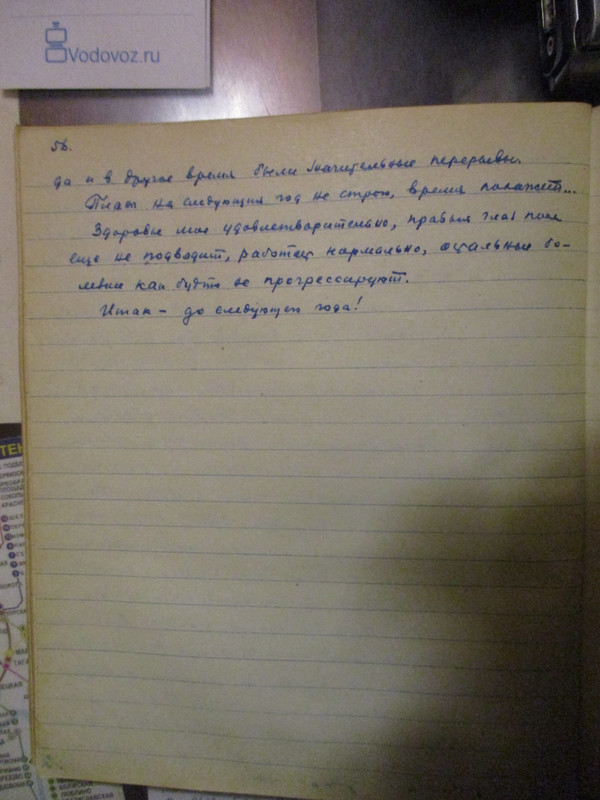 Vodovoz.ru
56.
да и в другое время были значительные перерывы.
План на следующий год не строю, время покажет...
Здоровье мое удовлетворительно, правый глаз пока
еще не подводит, работает нормально, остальные бо-
лезни как будто не прогрессируют.
Итак - до следующего года!